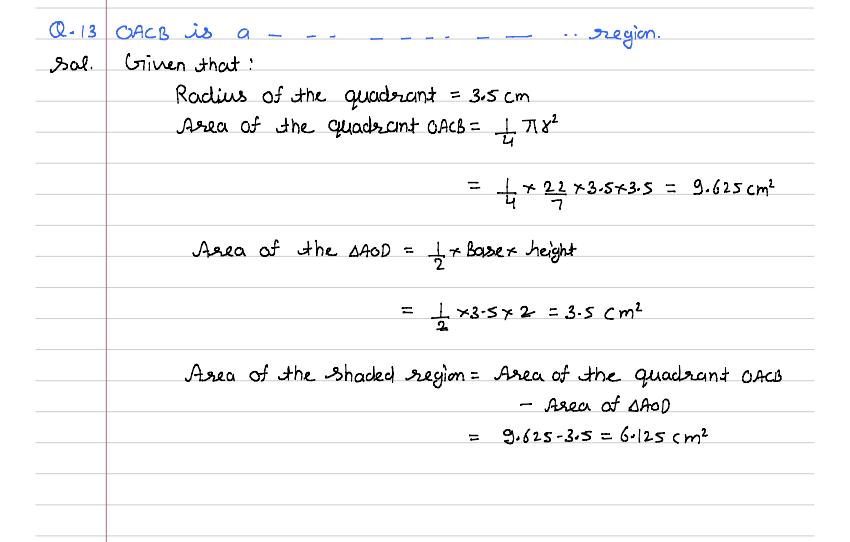 Q.13 OACB is a - - - - - - - - - .. region.
Sol. Given that :
Radius of the quadrant = 3.5 cm
Area of the quadrant OACB = 1/4 πr²
= 1/4 × 22/7 × 3.5 × 3.5 = 9.625 cm²
Area of the ΔAOD = 1/2 × Base × height
= 1/2 × 3.5 × 2 = 3.5 cm²
Area of the shaded region = Area of the quadrant OACB
- Area of ΔAOD
= 9.625 - 3.5 = 6.125 cm²